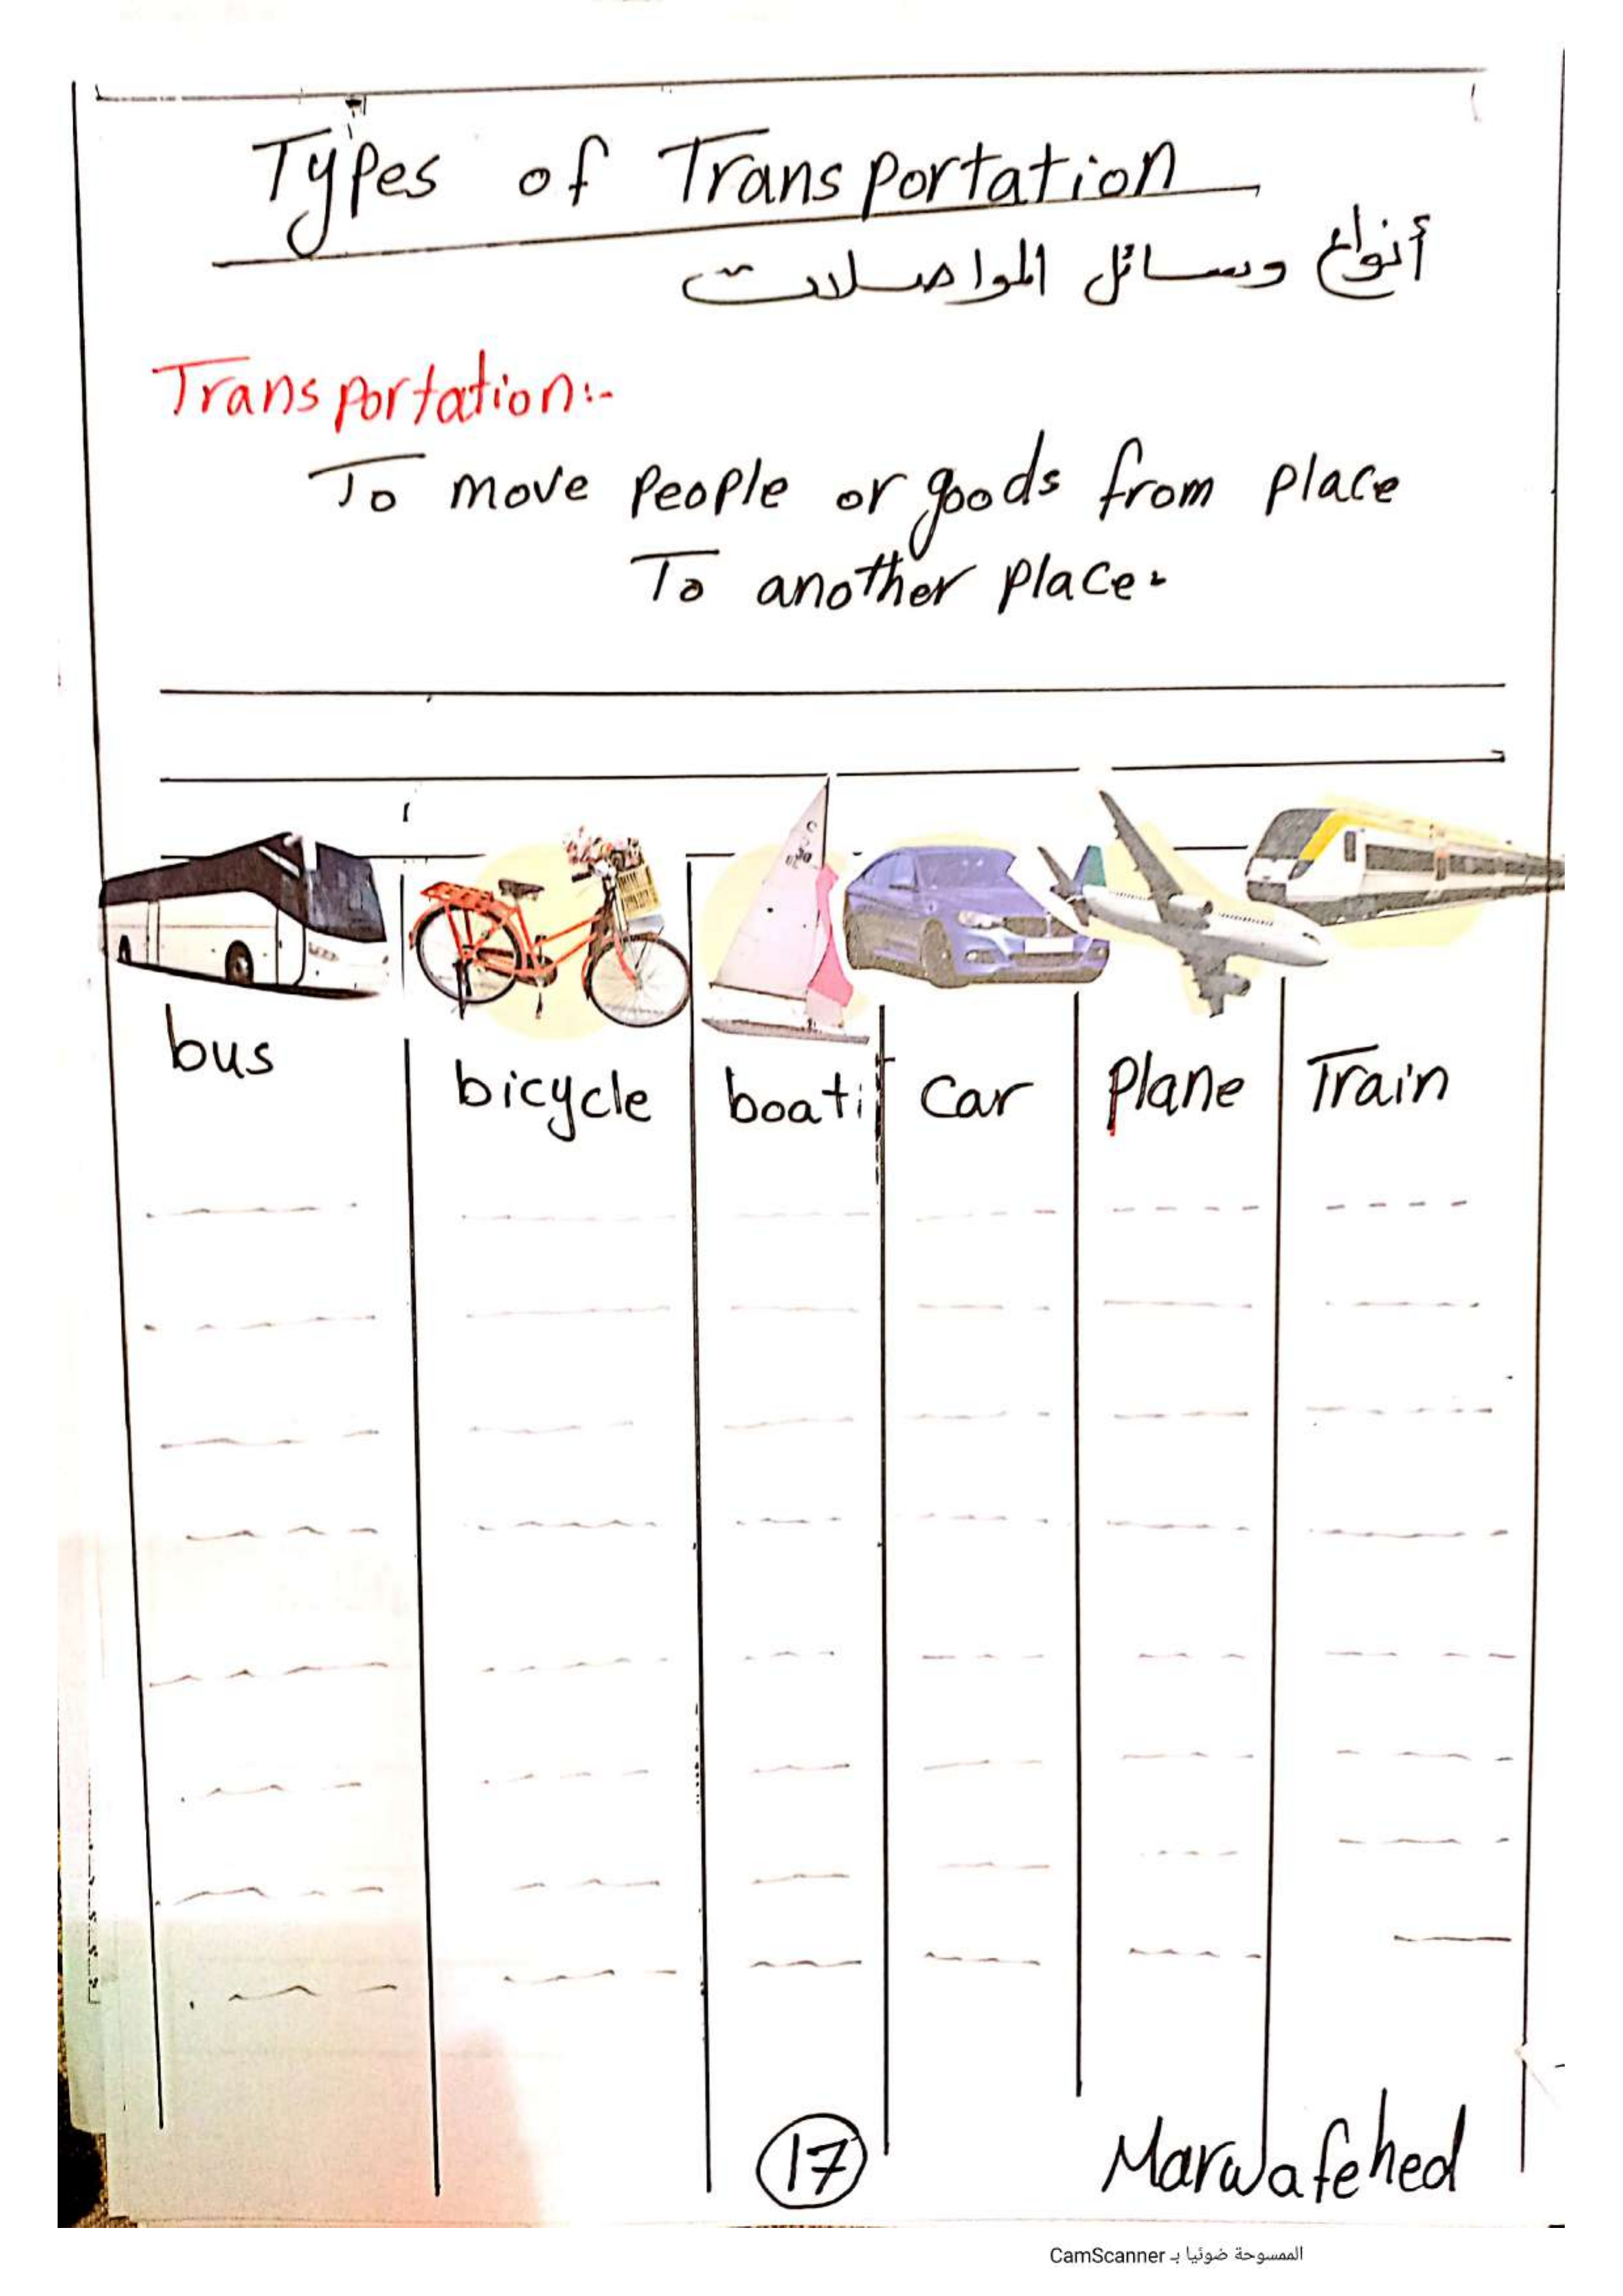 Types of Transportation
أنواع وسائل المواصلات
Transportation:-
To move people or goods from place
To another place.
bus
bicycle
boat
car
Plane
Train
17
Marwafehed
الممسوحة ضوئيا بـ CamScanner